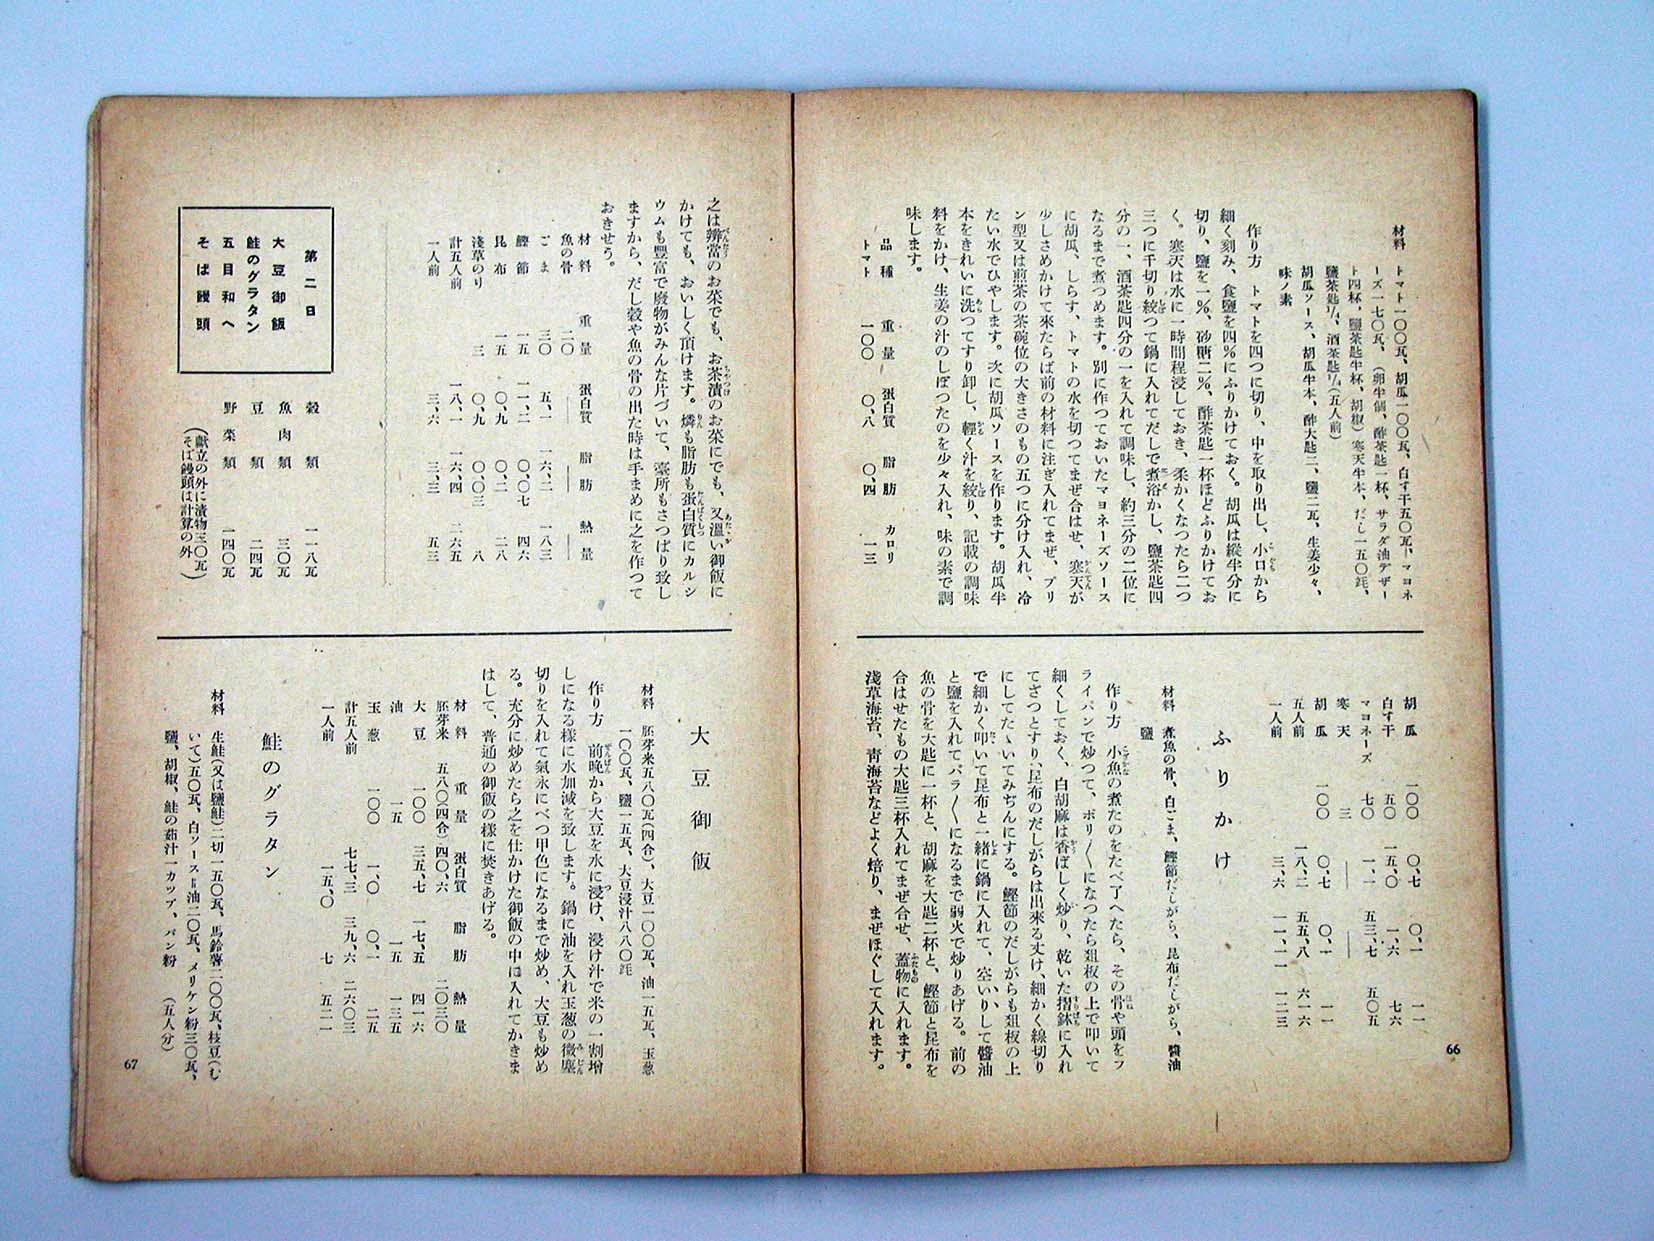 材料 トマト一〇〇瓦、胡瓜一〇〇瓦、白す干五〇瓦、マヨネ
ーズ一七〇瓦、(卵半個、酢茶匙一杯、サラダ油デザー
ト四杯、鹽茶匙半杯、胡椒)寒天半本、だし一五〇竓、
鹽茶匙¼、酒茶匙¼(五人前)
胡瓜ソース、胡瓜半本、酢大匙二、鹽二瓦、生姜少々、
味ノ素
作り方 トマトを四つに切り、中を取り出し、小口から
細く刻み、食鹽を四%にふりかけておく。胡瓜は縱半分に
切り、鹽を一%、砂糖二%、酢茶匙一杯ほどふりかけてお
く。寒天は水に一時間程浸しておき、柔かくなつたら二つ
三つに千切り絞つて鍋に入れてだしで煮溶かし、鹽茶匙四
分の一、酒茶匙四分の一を入れて調味し、約三分の二位に
なるまで煮つめます。別に作つておいたマヨネーズソース
に胡瓜、しらす、トマトの水を切つてまぜ合はせ、寒天が
少しさめかけて來たらば前の材料に注ぎ入れてまぜ、プリ
ン型又は煎茶の茶碗位の大きさのもの五つに分け入れ、冷
たい水でひやします。次に胡瓜ソースを作ります。胡瓜半
本をきれいに洗つてすり卸し、輕く汁を絞り、記載の調味
料をかけ、生姜の汁のしぼつたのを少々入れ、味の素で調
味します。
品種 重量 蛋白質 脂肪 カロリ
トマト 一〇〇 〇、八 〇、四 一三
胡瓜 一〇〇 〇、七 〇、一 一一
白す干 五〇 一五、〇 一、六 七六
マヨネーズ 七〇 一、一 五三、七 五〇五
寒天 三 ―― ――
胡瓜 一〇〇 〇、七 〇、一 一一
五人前 一八、二 五五、八 六一六
一人前 三、六 一一、一 一二三
ふりかけ
材料 煮魚の骨、白ごま、鰹節だしがら、昆布だしがら、醬油
鹽
作り方 小魚の煮たのをたべ了へたら、その骨や頭をフ
ライパンで炒つて、ポリ〳〵になつたら俎板の上で叩いて
細くしておく、白胡麻は香ばしく炒り、乾いた摺鉢に入れ
てざつとすり、昆布のだしがらは出來る丈け、細かく線切り
にしてたゝいてみぢんにする。鰹節のだしがらも俎板の上
で細かく叩いて昆布と一緒に鍋に入れて、空いりして醬油
と鹽を入れてパラ〳〵になるまで弱火で炒りあげる。前の
魚の骨を大匙に一杯と、胡麻を大匙二杯と、鰹節と昆布を
合はせたもの大匙三杯入れてまぜ合せ、蓋物に入れます。
淺草海苔、靑海苔などよく焙り、まぜほぐして入れます。
66
之は辨當のお菜でも、お茶漬のお菜にでも、又溫い御飯に
かけても、おいしく頂けます。燐も脂肪も蛋白質にカルシ
ウムも豐富で廢物がみんな片づいて、臺所もさつぱり致し
ますから、だし殼や魚の骨の出た時は手まめに之を作つて
おきせう。
材料 重量 蛋白質 脂肪 熱量
魚の骨 二〇 ―― ――
ごま 三〇 五、一 一六、二 一八三
鰹節 一五 一一、二 〇、〇七 四六
昆布 一五 〇、九 〇、二 二八
淺草のり 三 〇、九 〇、〇三 八
計五人前 一八、一 一六、四 二六五
一人前 三、六 三、三 五三
第二日
大豆御飯
鮭のグラタン
五目和へ
そば饅頭
穀類 一一八瓦
魚肉類 三〇瓦
豆類 二四瓦
野菜類 一四〇瓦
(獻立の外に漬物三〇瓦
そば饅頭は計算の外)
大豆御飯
材料 胚芽米五八〇瓦(四合)、大豆一〇〇瓦、油一五瓦、玉葱
一〇〇瓦、鹽一五瓦、大豆浸汁八八〇竓
作り方 前晚から大豆を水に浸け、浸け汁で米の一割增
しになる樣に水加減を致します。鍋に油を入れ玉葱の微塵
切りを入れて氣永にべつ甲色になるまで炒め、大豆も炒め
る。充分に炒めたら之を仕かけた御飯の中に入れてかきま
はして、普通の御飯の樣に焚きあげる。
材料 重量 蛋白質 脂肪 熱量
胚芽米 五八〇(四合) 四〇、六 二〇三〇
大豆 一〇〇 三五、七 一七、五 四一六
油 一五 一五 一三五
玉葱 一〇〇 一、〇 〇、一 二五
計五人前 七七、三 三九、六 二六〇三
一人前 一五、〇 七 五二一
鮭のグラタン
材料 生鮭(又は鹽鮭)二切一五〇瓦、馬鈴薯二〇〇瓦、枝豆(む
いて)五〇瓦、白ソース=油二〇瓦、メリケン粉三〇瓦、
鹽、胡椒、鮭の茹汁一カツプ、パン粉 (五人分)
67